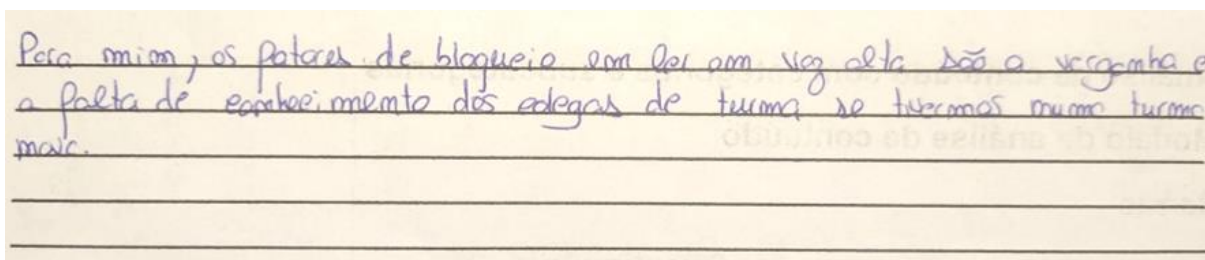 Para mim, os fatores de bloqueio em ler em voz alta são a vergonha e
a falta de conhecimento dos colegas de turma se tivermos numa turma